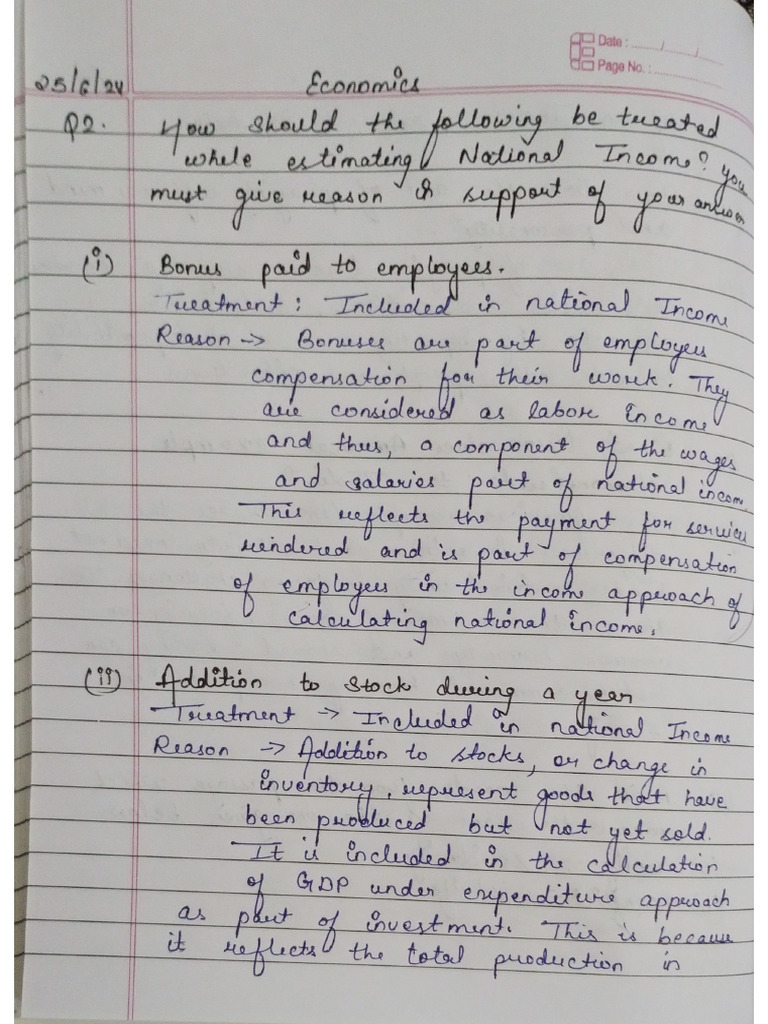 Date : ....../....../......
Page No. : ..................
25/6/24 Economics
Q2. How should the following be treated
while estimating National Income? you
must give reason in support of your answer
(i) Bonus paid to employees.
Treatment : Included in national Income
Reason -> Bonuses are part of employees
compensation for their work. They
are considered as labor income
and thus, a component of the wages
and salaries part of national income.
This reflects the payment for services
rendered and is part of compensation
of employees in the income approach of
calculating national income.
(ii) Addition to stock during a year
Treatment -> Included in national Income
Reason -> Addition to stocks, or change in
inventory, represent goods that have
been produced but not yet sold.
It is included in the calculation
of GDP under expenditure approach
as part of investment. This is because
it reflects the total production in